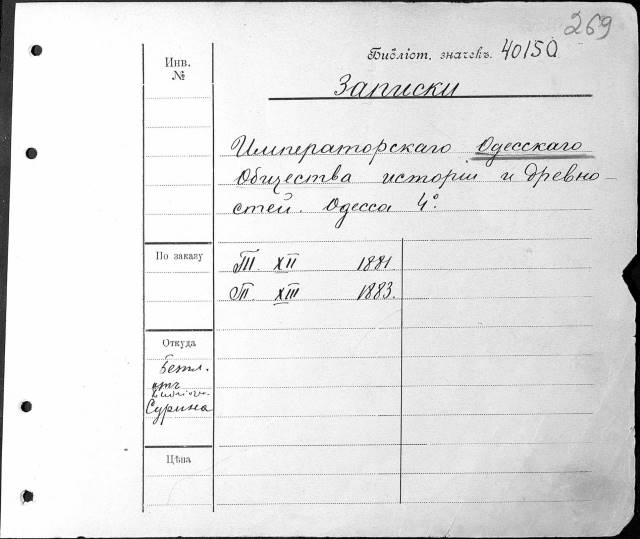 269
Библіот. значекъ. 40150
Инв.
№
Записки
Императорскаго Одесскаго
Общества исторіи и древно-
стей. Одесса 4º.
По заказу
Т. XII 1881.
Т. XIII 1883.
Откуда
Безпл.
отъ
Сурина
Цѣна